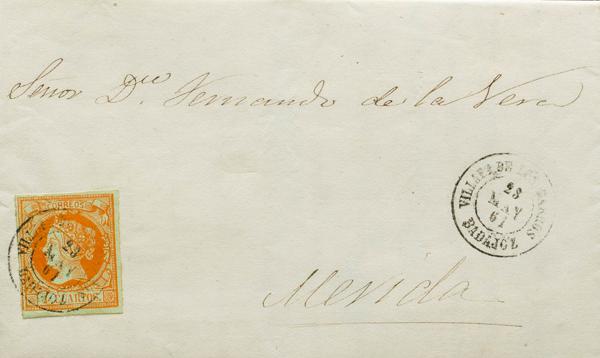 Señor Dn Fernando de la Vera
CORREOS
23
MAY
61
CUARTOS
VILLAFA DE LOS BARROS
23
MAY
61
BADAJOZ
Merida